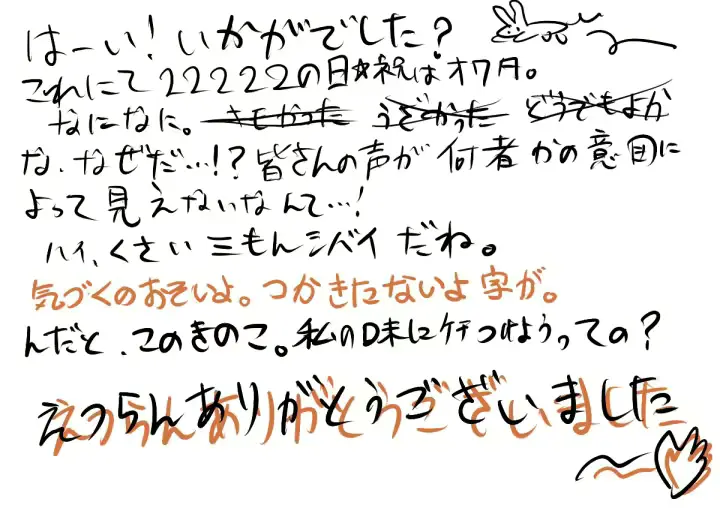 はーい!いかがでした?
これにて22222の日☆祝はオワタ。
なになに。きもかった うざかった どうでもよか
な、なぜだ…!?皆さんの声が何者かの意図に
よって見えないなんて…!
ハイ、くさい三もんシバイだね。
気づくのおそいよ。つかきたないよ字が。
んだと、このきのこ。私の口未にケチつけようっての?
えつらんありがとうございました